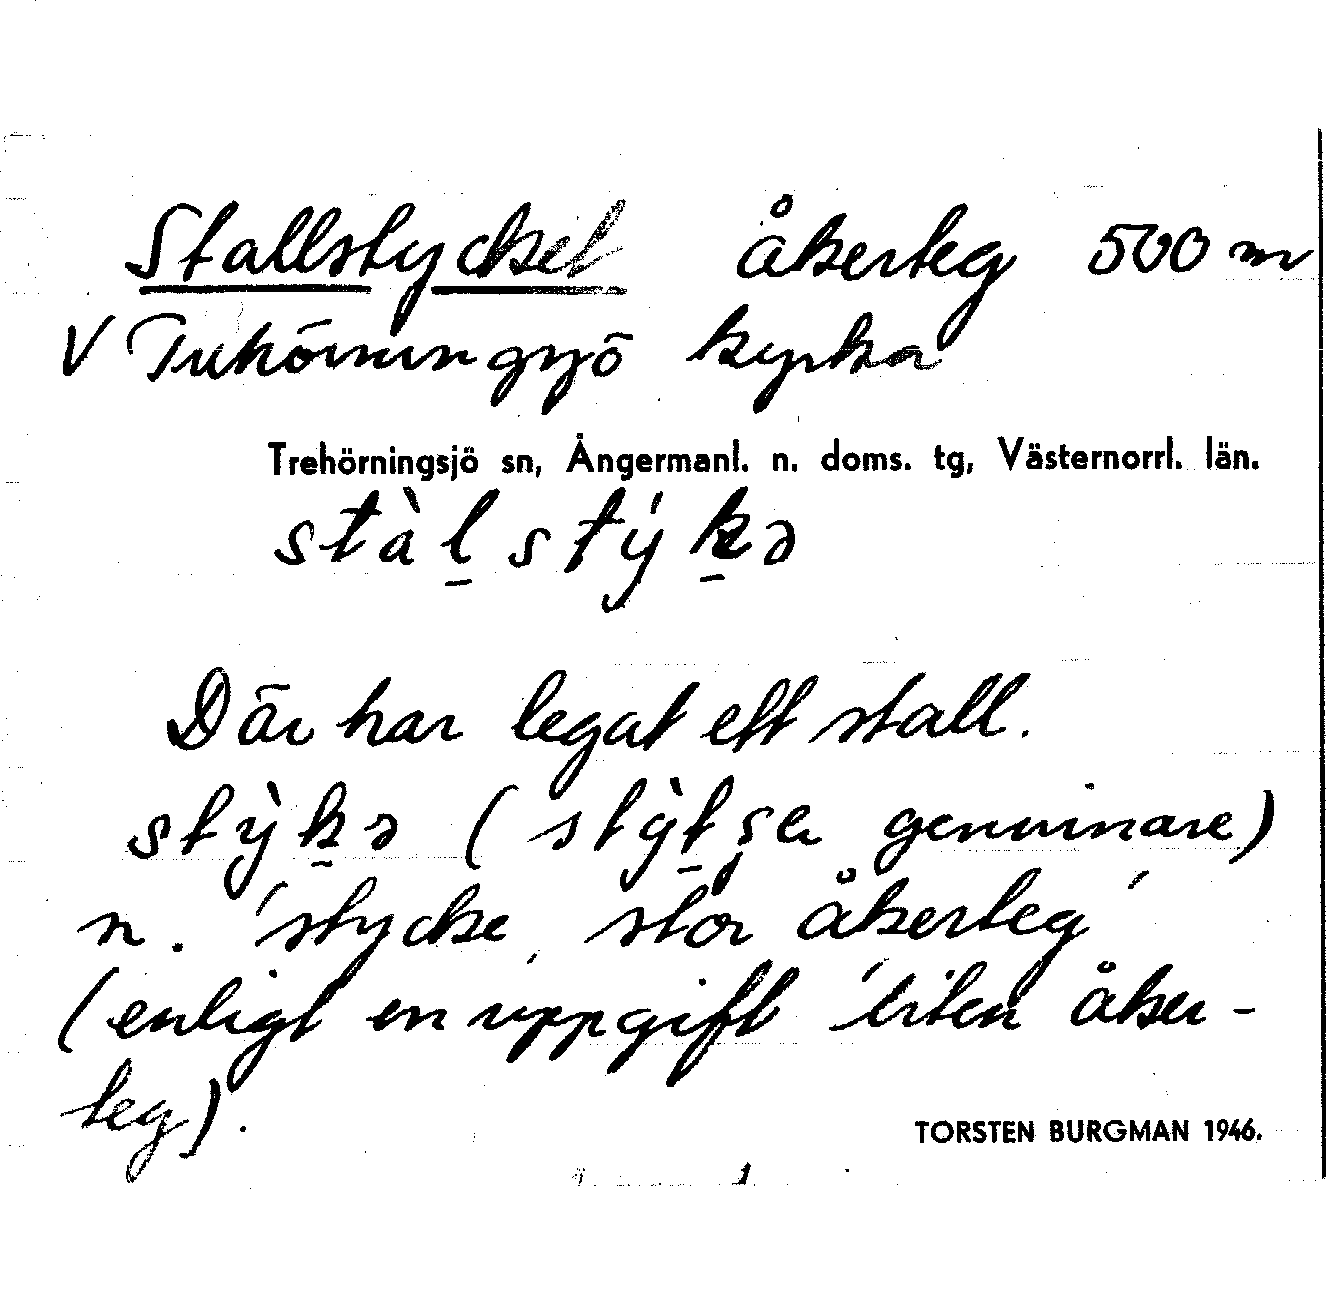 Stallstycket åkerteg 500 m
V Trehörningsjö kyrka
Trehörningsjö sn, Ångermanl. n. doms. tg, Västernorrl. län.
stàl̲stýk̲ə
Där har legat ett stall.
stỳk̲ə (stỳt̲şɐ genuinare)
n. 'stycke, stor åkerteg'
(enligt en uppgift 'liten åker-
teg).
TORSTEN BURGMAN 1946.